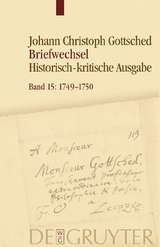 Johann Christoph Gottsched
Briefwechsel
Historisch-kritische Ausgabe
Band 15: 1749–1750
A Monsieur
Monsieur Gottsched,
Professeur
extraordinaire
Philosophie & Poesie,
Leipzig.
DE GRUYTER